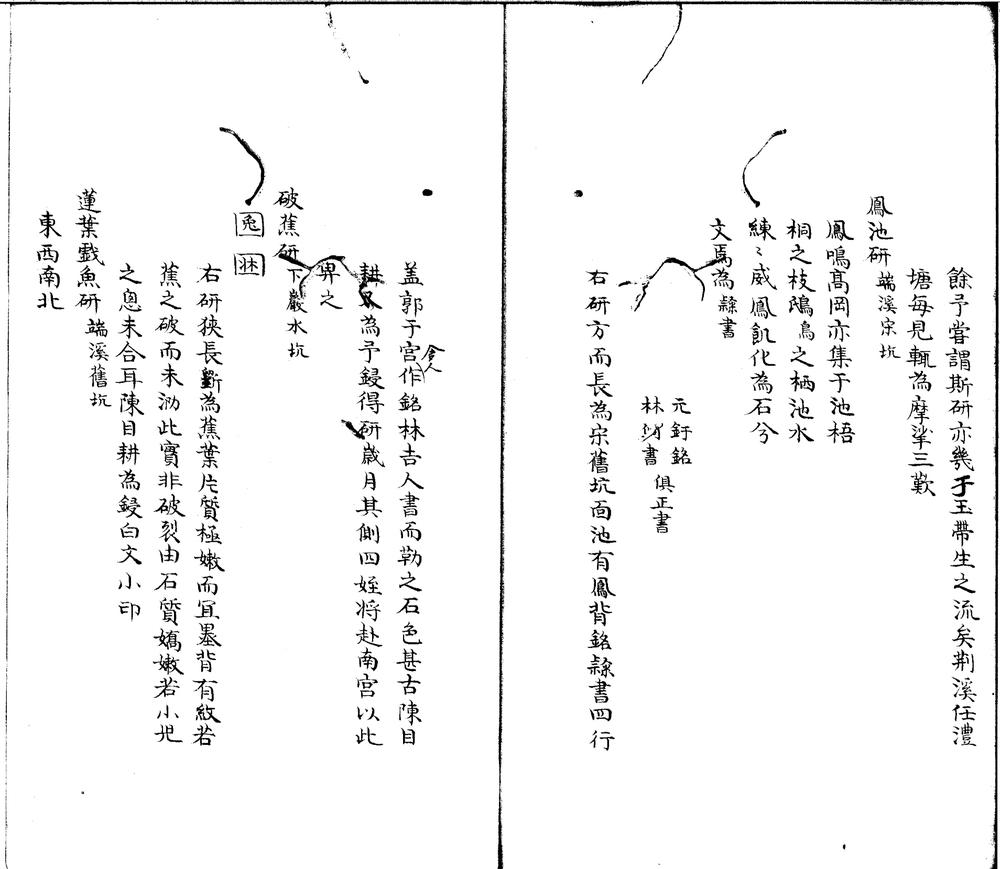 餘予嘗謂斯研亦幾于玉帶生之流矣荆溪任澧
塘每見輒為摩挲三歎
鳳池研 端溪宋坑
鳳鳴髙岡亦集于池梧
桐之枝鴟鳥之栖池水
練〻威鳳飢化為石兮
文焉為 隸書
元釪銘
林 書 俱正書
右研方而長為宋舊坑面池有鳳背銘隸書四行
盖郭于宮作銘林吉人書而勒之石色甚古陳目
舍人
耕 為予鋟得研歲月其側四姪将赴南宫以此
畀之
破蕉研 下巖水坑
兔
右研狭長斵為蕉葉片質極嫩而宜墨背有紋若
蕉之破而未泐此實非破裂由石質嬌嫩若小兒
之囟未合耳陳目耕為鋟白文小印
蓮葉戲魚研 端溪舊坑
東西南北